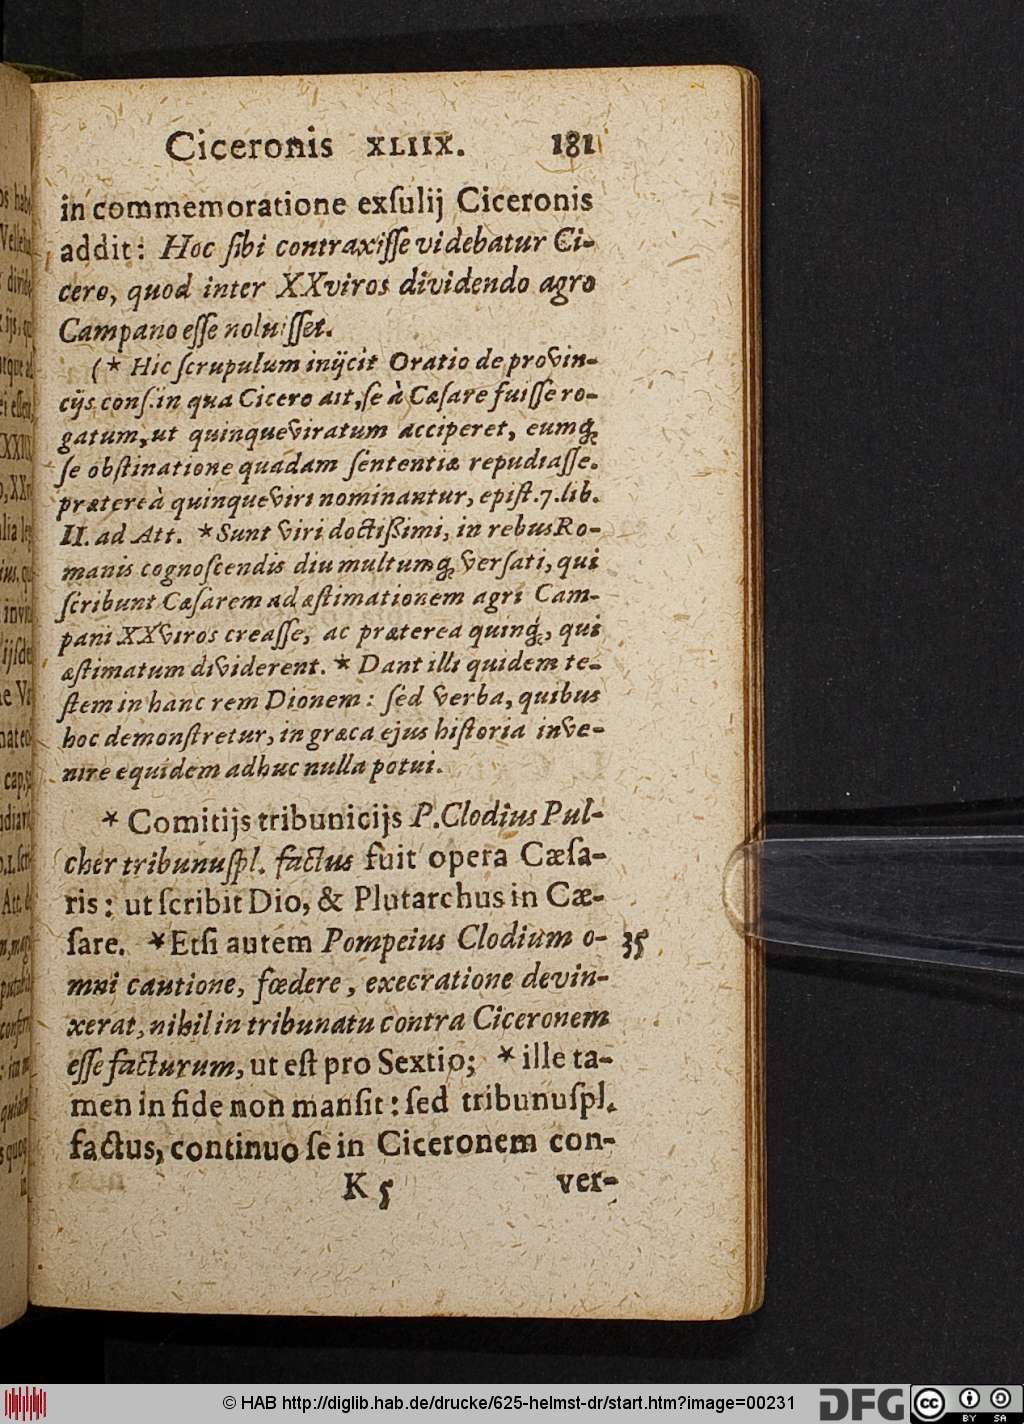 Ciceronis XLIIX. 181
in commemoratione exſulij Ciceronis
addit: Hoc ſibi contraxiſſe videbatur Ci-
cero, quod inter XXviros dividendo agro
Campano eſſe noluiſſet.
(* Hic ſcrupulum inijcit Oratio de provin-
cijs conſ. in qua Cicero ait, ſe à Cæſare fuiſſe ro-
gatum, ut quinqueviratum acciperet, eumq́;
ſe obſtinatione quadam ſententiæ repudiaſſe.
præterea à quinqueviri nominantur, epiſt. 7. lib.
II. ad Att. * Sunt viri doctißimi, in rebus Ro-
manis cognoſcendis diu multumq́; verſati, qui
ſcribunt Cæſarem ad æſtimationem agri Cam-
pani XXviros creaſſe, ac præterea quinq́;, qui
æſtimatum dividerent. * Dant illi quidem te-
ſtem in hanc rem Dionem: ſed verba, quibus
hoc demonſtretur, in græca ejus hiſtoria inve-
nire equidem adhuc nulla potui.
* Comitijs tribunicijs P. Clodius Pul-
cher tribunuſpl. factus fuit opera Cæſa-
ris: ut ſcribit Dio, & Plutarchus in Cæ-
ſare. * Etſi autem Pompeius Clodium o- 35
mni cautione, fœdere, execratione devin-
xerat, nihil in tribunatu contra Ciceronem
eſſe facturum, ut eſt pro Sextio; * ille ta-
men in fide non manſit: ſed tribunuſpl.
factus, continuo ſe in Ciceronem con-
K 5 ver-
© HAB http://diglib.hab.de/drucke/625-helmst-dr/start.htm?image=00231
DFG
cc BY SA